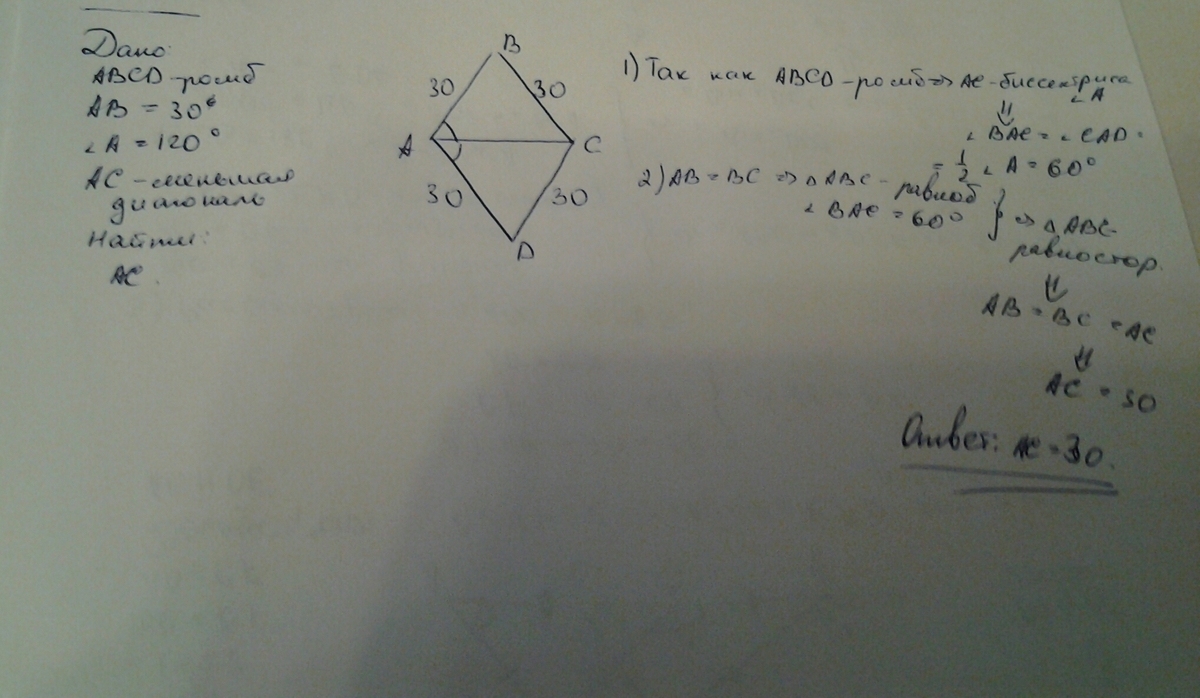 Дано:
ABCD-ромб
AB = 30°
∠A = 120°
AC-меньшая
диагональ
Найти:
AC.
B
30
30
A
C
30
30
D
1) Так как ABCD-ромб⇒ AC-биссектриса
∠A
⇓
∠BAC = ∠CAD =
= 1/2 ∠A = 60°
2) AB = BC ⇒ △ABC- равноб.
∠BAC = 60° } ⇒ △ABC-
равностор.
⇓
AB = BC = AC
⇓
AC = 30
Ответ: AC = 30.